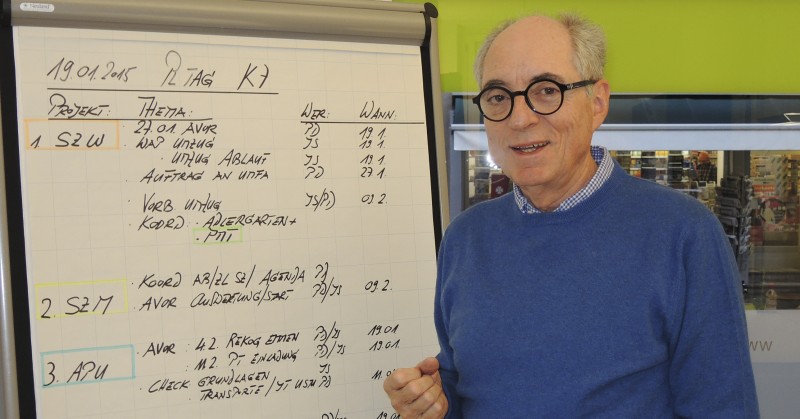 19.01.2015 RTAG K7
PROJEKT: THEMA: WER: WANN:
1. SZW · 27.01 AVOR PD 19.1.
· WAP UMZUG JS 19.1
· UMZUG ABLAUF JS 19.1
· AUFTRAG AN UMFA PD 27.1.
· VORB UMZUG JS/PD 09.2.
· KOORD: · ADLERGARTEN +
· PMT
2. SZM · KOORD AB/ZL SZ/AGENDA PD
· AVOR AUSWERTUNG/START PD/JS 09.2.
3. APU · AVOR: 4.2. REKOG EMMEN PD/JS 19.01
11.2. PT EINLADUNG PD/JS 19.01.
· CHECK GRUNDLAGEN JS
TRANSPORTE/ PD 11.0
19.01
WW